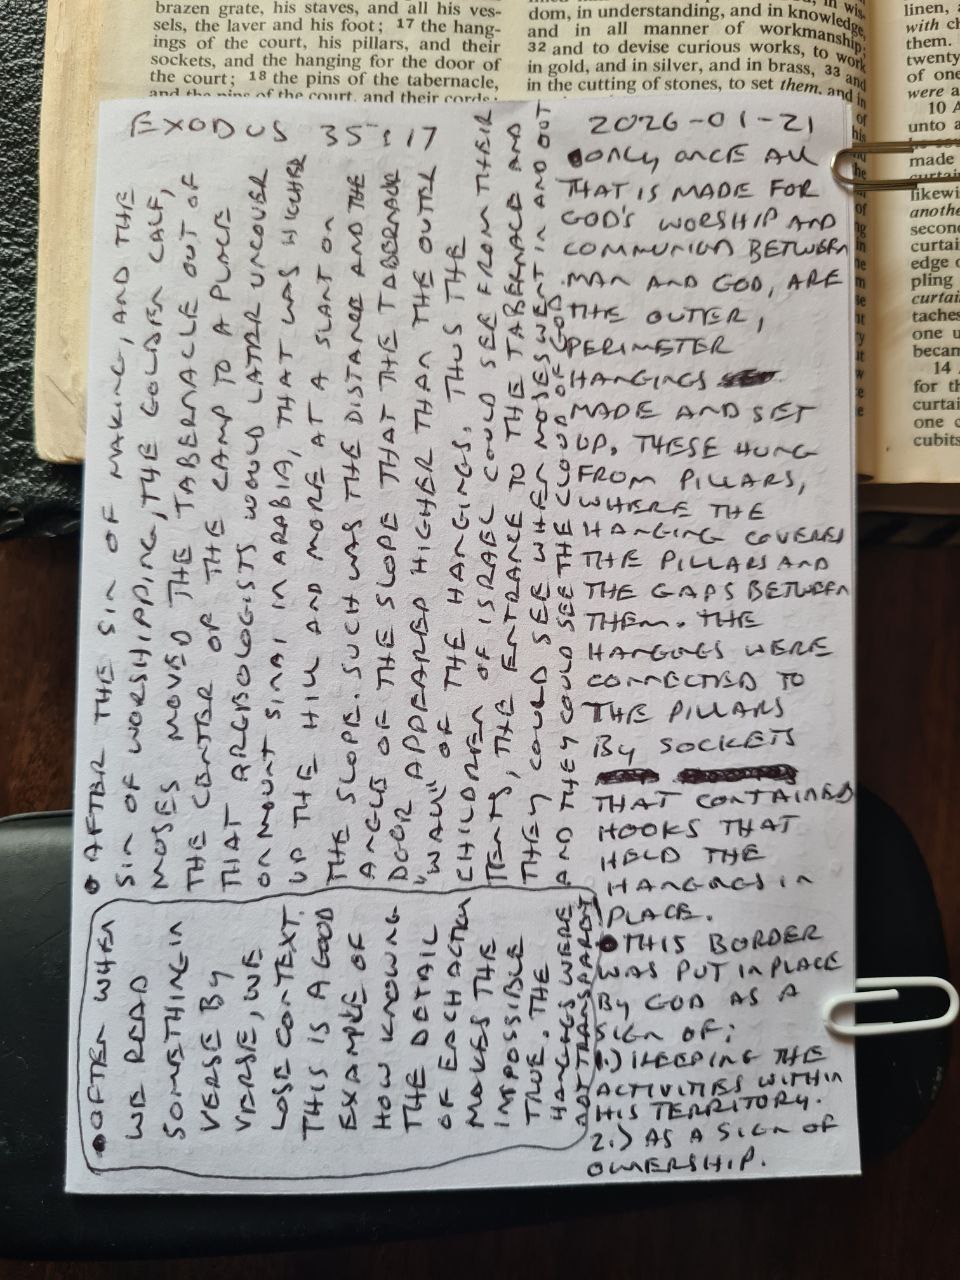 brazen grate, his staves, and all his ves-
sels, the laver and his foot; 17 the hang-
ings of the court, his pillars, and their
sockets, and the hanging for the door of
the court; 18 the pins of the tabernacle,
and the pins of the court, and their cords;
dom, in understanding, and in knowledge,
and in all manner of workmanship;
32 and to devise curious works, to work
in gold, and in silver, and in brass, 33 and
in the cutting of stones, to set them, and in
linen,
with
them.
twenty
of one
were a
10 A
unto a
made
curtain
likewi
anothe
second
curtain
edge o
pling
curtain
taches
one u
becam
14
for th
curtai
one c
cubits
EXODUS 35:17
2026-01-21
•ONLY ONCE ALL
THAT IS MADE FOR
GOD'S WORSHIP AND
COMMUNION BETWEEN
MAN AND GOD, ARE
THE OUTER,
PERIMETER
HANGINGS
MADE AND SET
UP. THESE HUNG
FROM PILLARS,
WHERE THE
HANGING COVERED
THE PILLARS AND
THE GAPS BETWEEN
THEM. THE
HANGINGS WERE
CONNECTED TO
THE PILLARS
BY SOCKETS
THAT CONTAINED
HOOKS THAT
HELD THE
HANGINGS IN
PLACE.
•THIS BORDER
WAS PUT IN PLACE
BY GOD AS A
SIGN OF:
1.) KEEPING THE
ACTIVITIES WITHIN
HIS TERRITORY.
2.) AS A SIGN OF
OWNERSHIP.
•AFTER THE SIN OF MAKING, AND THE
SIN OF WORSHIPPING, THE GOLDEN CALF,
MOSES MOVED THE TABERNACLE OUT OF
THE CENTER OF THE CAMP TO A PLACE
THAT ARGEOLOGISTS WOULD LATER UNCOVER
ON MOUNT SINAI IN ARABIA, THAT WAS HIGHER
UP THE HILL AND MORE AT A SLANT ON
THE SLOPE. SUCH WAS THE DISTANCE AND THE
ANGLE OF THE SLOPE THAT THE TABERNACLE
DOOR APPEARED HIGHER THAN THE OUTER
"WALL" OF THE HANGINGS. THUS THE
CHILDREN OF ISRAEL COULD SEE FROM THEIR
TENTS, THE ENTRANCE TO THE TABERNACLE AND
THEY COULD SEE WHEN MOSES WENT IN AND OUT
AND THEY COULD SEE THE CLOUD OF GOD.
•OFTEN WHEN
WE READ
SOMETHING IN
VERSE BY
VERSE, WE
LOSE CONTEXT.
THIS IS A GOOD
EXAMPLE OF
HOW KNOWING
THE DETAIL
OF EACH ACTION
MAKES THE
IMPOSSIBLE
TRUE. THE
HANGINGS WERE
NOT TRANSPARENT